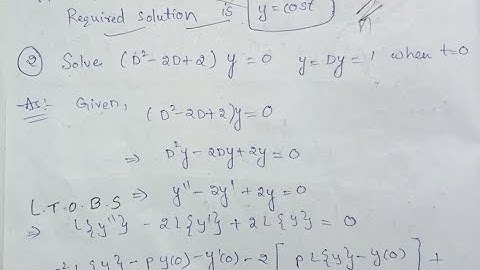 Required solution is y = cost
② Solve (D²-2D+2) y = 0 y = Dy = 1 when t=0
As:- Given,
(D²-2D+2)y=0
⇒ D²y-2Dy+2y=0
L.T.O.B.S ⇒ y''-2y'+2y=0
⇒ L{y''} - 2L{y'} + 2L{y} = 0
L{y}-py(0)-y'(0)-2[pL{y}-y(0)] +